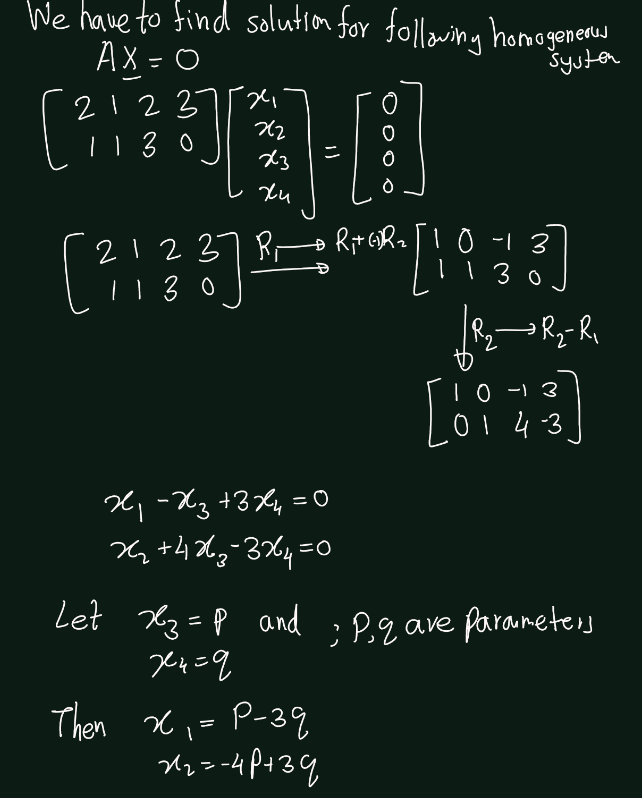 We have to find solution for following homogeneous system
AX = 0
[2 1 2 3; 1 1 3 0] [x₁; x₂; x₃; x₄] = [0; 0; 0; 0]
[2 1 2 3; 1 1 3 0] R₁ → R₁+(-1)R₂ [1 0 -1 3; 1 1 3 0]
↓ R₂ → R₂-R₁
[1 0 -1 3; 0 1 4 -3]
x₁ - x₃ + 3x₄ = 0
x₂ + 4x₃ - 3x₄ = 0
Let x₃ = p and ; P,q are parameters
x₄ = q
Then x₁ = P-3q
x₂ = -4P+3q